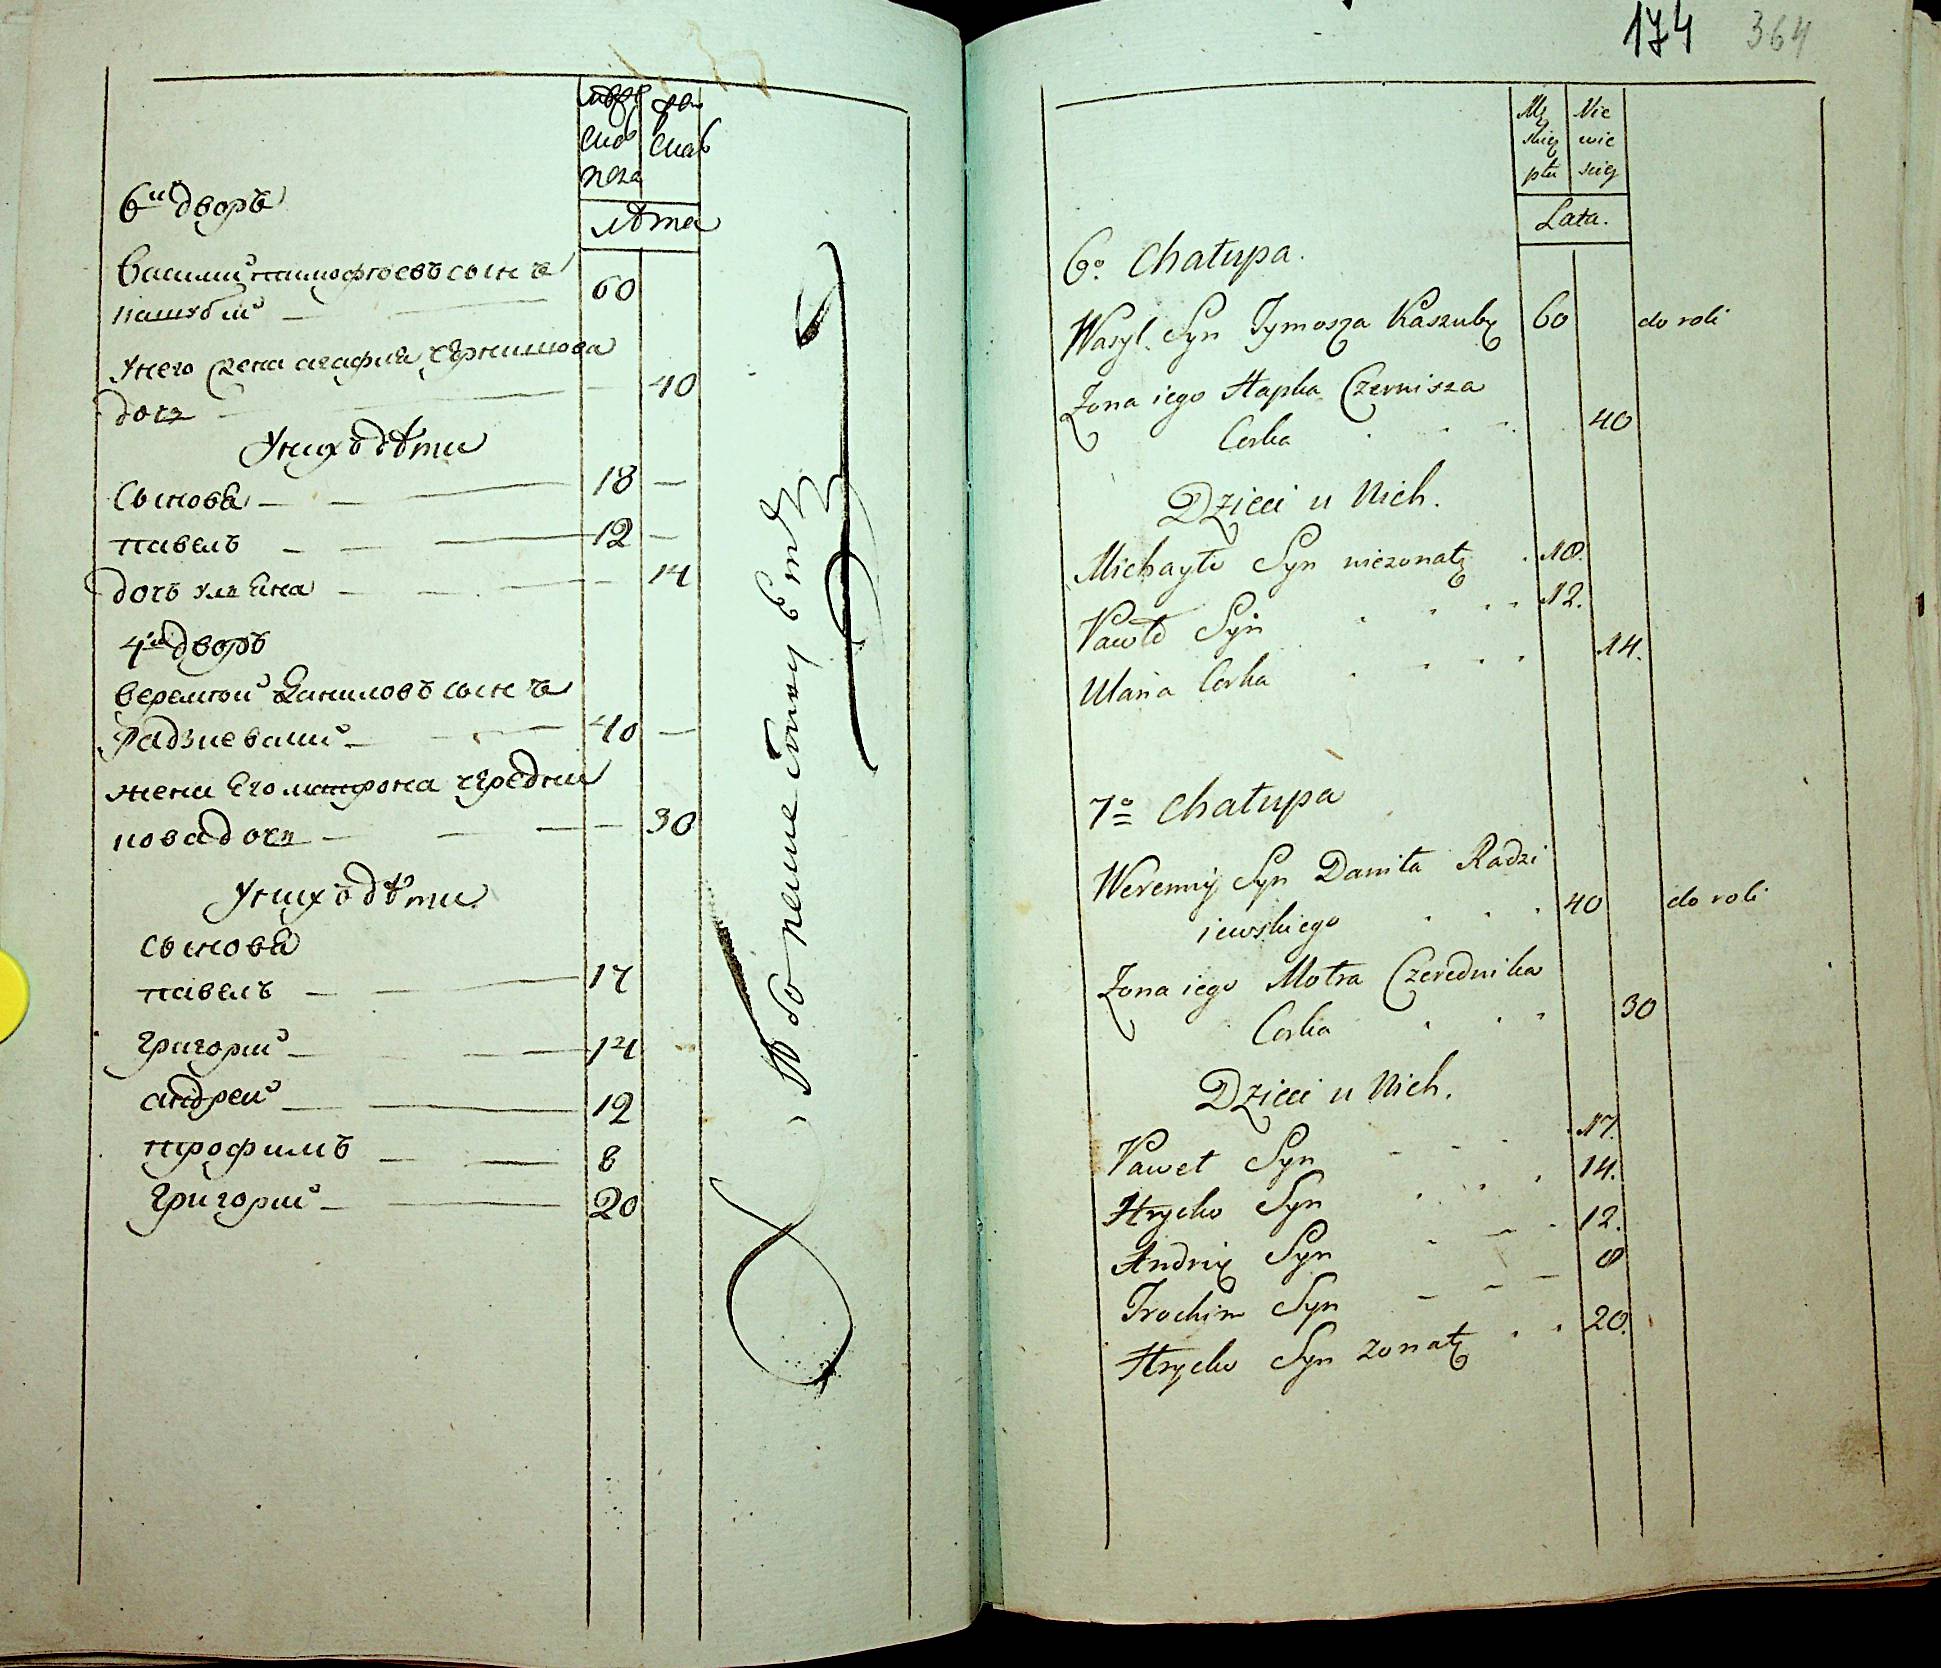 6й дворъ
мужеска
женска
лѣта
Василий Тимофѣевъ сынъ
Кашубий 60
У него жена агафия чернишова
дочь 40
У нихъ дѣти
Сыновя 18
павелъ 12
дочь ульяна 14
4й дворъ
веремѣй Даниловъ сынъ
Радзиевский 40
жена Его матрона чередни
кова дочь 30
У нихъ дѣти
сыновя
павелъ 17
григорий 14
андрей 12
трофимъ 8
григорий 20
174 364
Mę Nie
skiey wie
płci skiey
Lata.
6o Chałupa.
Wasyl Syn Tymosza Kaszuby 60 do roli
Zona iego Hapka Czernisza
Corka 40
Dzieci u Nich.
Michayło Syn niezonaty 18.
Pawło Syn 12.
Ulana Corka 14.
7o Chałupa
Weremiy Syn Daniła Radzi
iewskiego 40 do roli
Zona iego Motra Czerednika
Corka 30
Dzieci u Nich.
Paweł Syn 17.
Hrycko Syn 14.
Andriy Syn 12.
Trochim Syn 8
Hrycko Syn zonaty 20.